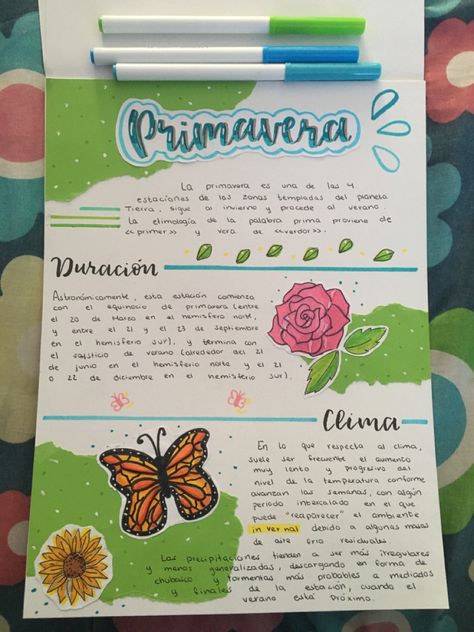 Primavera
La primavera es una de las 4
estaciones de las zonas templadas del planeta
Tierra, sigue al invierno y precede al verano.
La etimología de la palabra prima proviene de
«primer» y vera de «verdor».
Duración
Astronómicamente, esta estación comienza
con el equinocio de primavera (entre
el 20 de Marzo en el hemisferio norte,
y entre el 21 y el 23 de Septiembre
en el hemisferio sur), y termina con
el solsticio de verano (alrededor del 21
de junio en el hemisferio norte y el 21
o 22 de diciembre en el hemisferio sur).
Clima
En lo que respecta al clima,
suele ser frecuente el aumento
muy lento y progresivo del
nivel de la temperatura conforme
avanzan las semanas, con algún
período intercalado en el que
puede "reaparecer" el ambiente
invernal debido a algunas masas
de aire frío residuales
Las precipitaciones tienden a ser más irregulares
y menos generalizadas, descargando en forma de
chubasco y tormentas más probables a mediados
y finales de la estación, cuando el
verano está próximo.